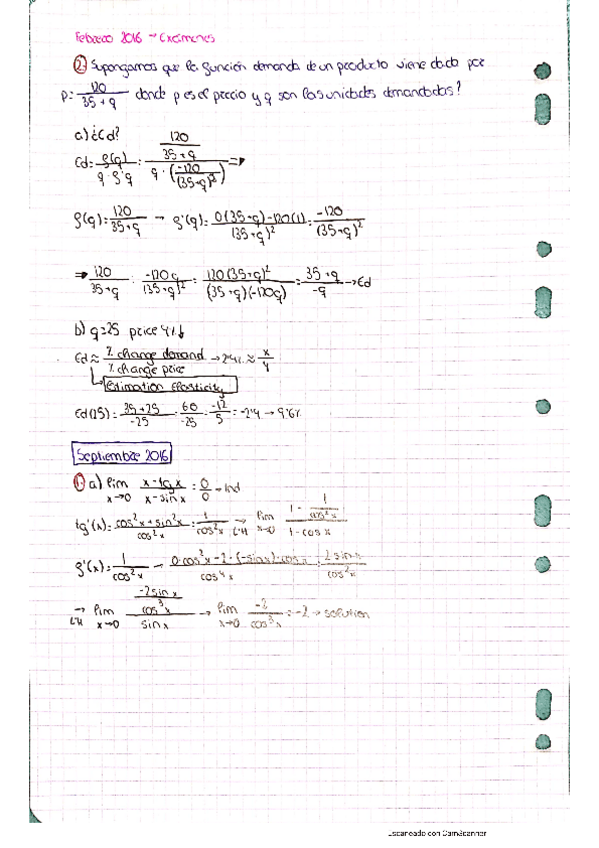 Febrero 2016 → Exámenes
2. Supongamos que la función demanda de un producto viene dada por
p = 120/(35+q) donde p es el precio y q son las unidades demandadas?
a) ¿Ed?
Ed = p(q)/(q · p'q) = (120/(35+q))/(q · (-120/(35+q)²)) ⇒
p(q) = 120/(35+q) → p'(q) = (0(35+q)-120(1))/(35+q)² = -120/(35+q)²
⇒ 120/(35+q) : -120q/(35+q)² = 120(35+q)²/((35+q)(-120q)) = (35+q)/-q → Ed
b) q=25 price 4%↓
Ed ≈ % change demand / % change price → -2'4% ≈ x/4
Estimation Elasticity
Ed(25) = (35+25)/-25 = 60/-25 = -12/5 = -2'4 → 9'6%
Septiembre 2016
1. a) lim x→0 (x-tgx)/(x-sinx) = 0/0 → Ind
tg'(x) = (cos²x+sin²x)/cos²x = 1/cos²x → L'H lim x→0 (1 - 1/cos²x)/(1-cosx)
g'(x) = 1/cos²x → (0·cos²x-2·(-sinx)·cosx)/cos⁴x = 2sinx/cos²x
→ L'H lim x→0 (-2sinx/cos³x)/sinx → lim x→0 -2/cos³x = -2 → solution
Escaneado con CamScanner